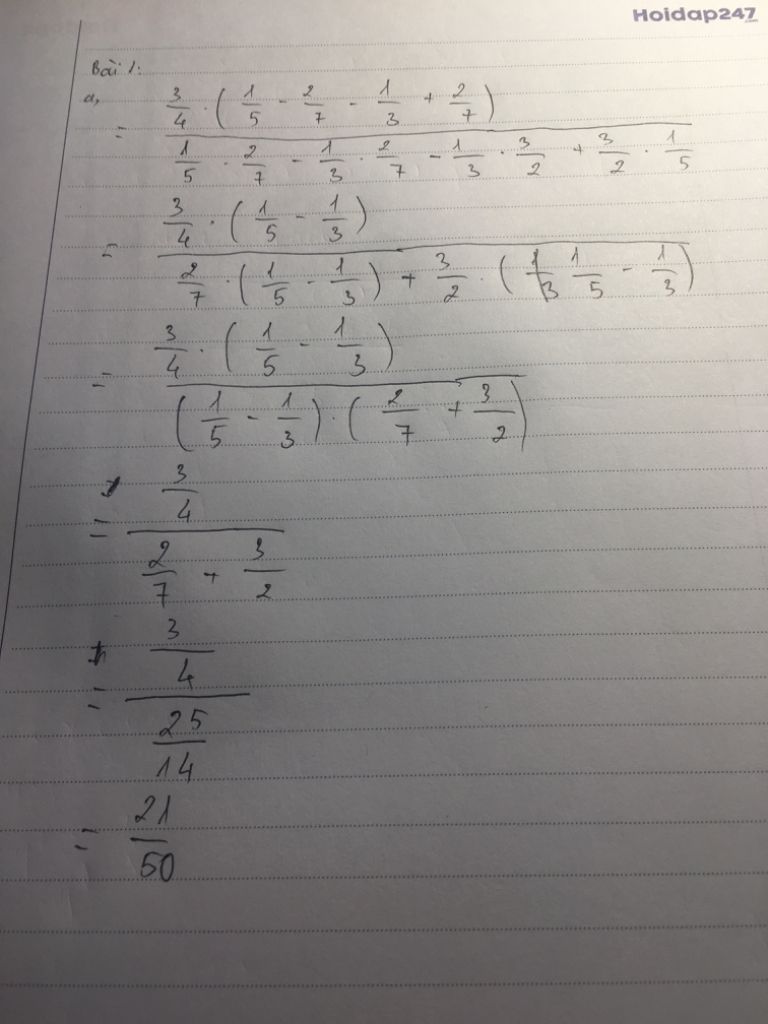 Hoidap247
Bài 1:
a,
= 3/4 . ( 1/5 - 2/7 - 1/3 + 2/7 )
1/5 . 2/7 - 1/3 . 2/7 - 1/3 . 3/2 + 3/2 . 1/5
= 3/4 . ( 1/5 - 1/3 )
2/7 . ( 1/5 - 1/3 ) + 3/2 . ( 1/5 - 1/3 )
= 3/4 . ( 1/5 - 1/3 )
( 1/5 - 1/3 ) . ( 2/7 + 3/2 )
= 3/4
2/7 + 3/2
= 3/4
25/14
= 21/50